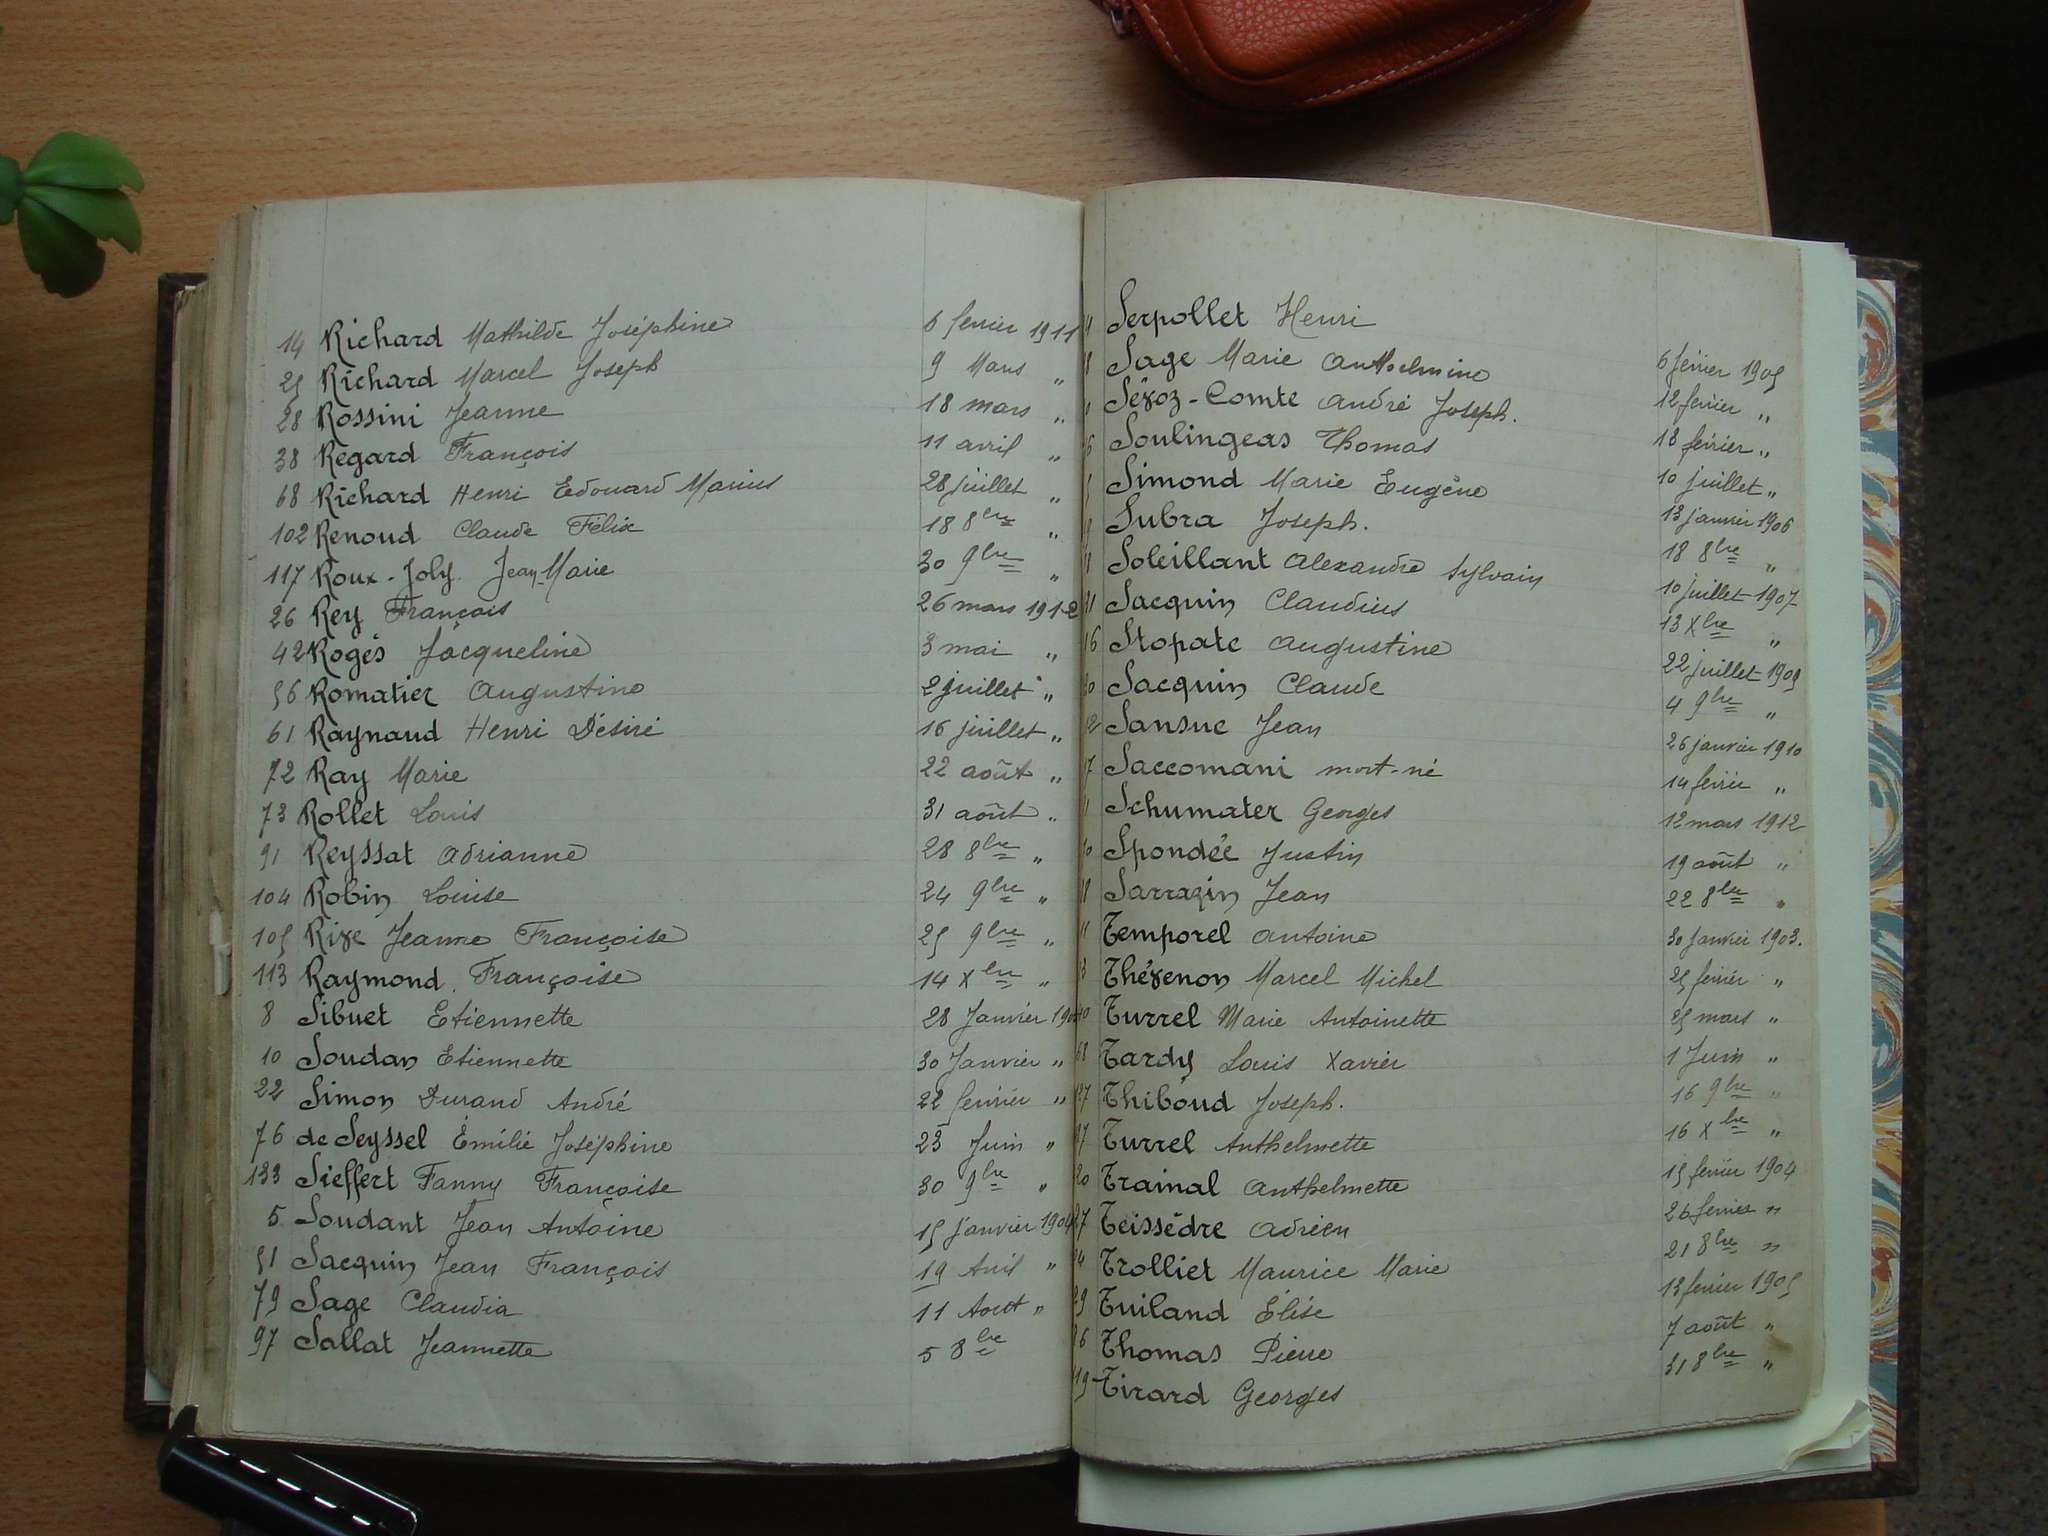 14 Richard Mathilde Joséphine 6 fevrier 1911
25 Richard Marcel Joseph 9 Mars „
28 Rossini Jeanne 18 mars „
38 Regard François 11 avril „
68 Richard Henri Edouard Marius 28 juillet „
102 Renoud Claude Félix 18 8bre „
117 Roux-Joly Jean-Marie 30 9bre „
26 Rey François 26 mars 1912
42 Rogés Jacqueline 3 mai „
56 Romatier Augustine 2 juillet „
61 Raynaud Henri Désiré 16 juillet „
72 Ray Marie 22 août „
73 Rollet Louis 31 août „
91 Reyssat Adrianne 28 8bre „
104 Robin Louise 24 9bre „
105 Rive Jeanne Françoise 25 9bre „
113 Raymond Françoise 14 Xbre „
8 Sibuet Etiennette 28 Janvier
10 Soudan Etiennette 30 Janvier „
22 Simon Durand André 22 fevrier „
76 de Seyssel Émilie Joséphine 23 Juin „
133 Sieffert Fanny Françoise 30 9bre „
5 Soudant Jean Antoine 15 janvier 1904
51 Sacquin Jean François 19 Avril „
79 Sage Claudia 11 Aout „
97 Sallat Jeannette 5 8bre
Serpollet Henri 6 février 1905
Sage Marie Anthelmine 12 fevrier „
Sévoz-Comte André Joseph. 18 février „
Soulingeas Thomas 10 juillet „
Simond Marie Eugène 13 janvier 1906
Subra Joseph. 18 8bre „
Soleillant Alexandre Sylvain 10 juillet 1907
Sacquin Claudius 13 Xbre „
Stopate Augustine 22 juillet 1909
Sacquin Claude 4 9bre „
Sansuc Jean 26 janvier 1910
Saccomani mort-né 14 février „
Schumater Georges 12 mars 1912
Spondée Justin 19 août „
Sarrazin Jean 22 8bre „
Temporel Antoine 30 Janvier 1903.
Thévenon Marcel Michel 25 février „
Turrel Marie Antoinette 25 mars „
Tardy Louis Xavier 1 Juin „
Thiboud Joseph. 16 9bre „
Turrel Anthelmette 16 Xbre „
Trainal Anthelmette 15 février 1904
Teissèdre Adrien 26 fevrier „
Trolliet Maurice Marie 21 8bre „
Tuiland Élise 13 fevrier 1905
Thomas Pierre 7 août „
Tirard Georges 31 8bre „